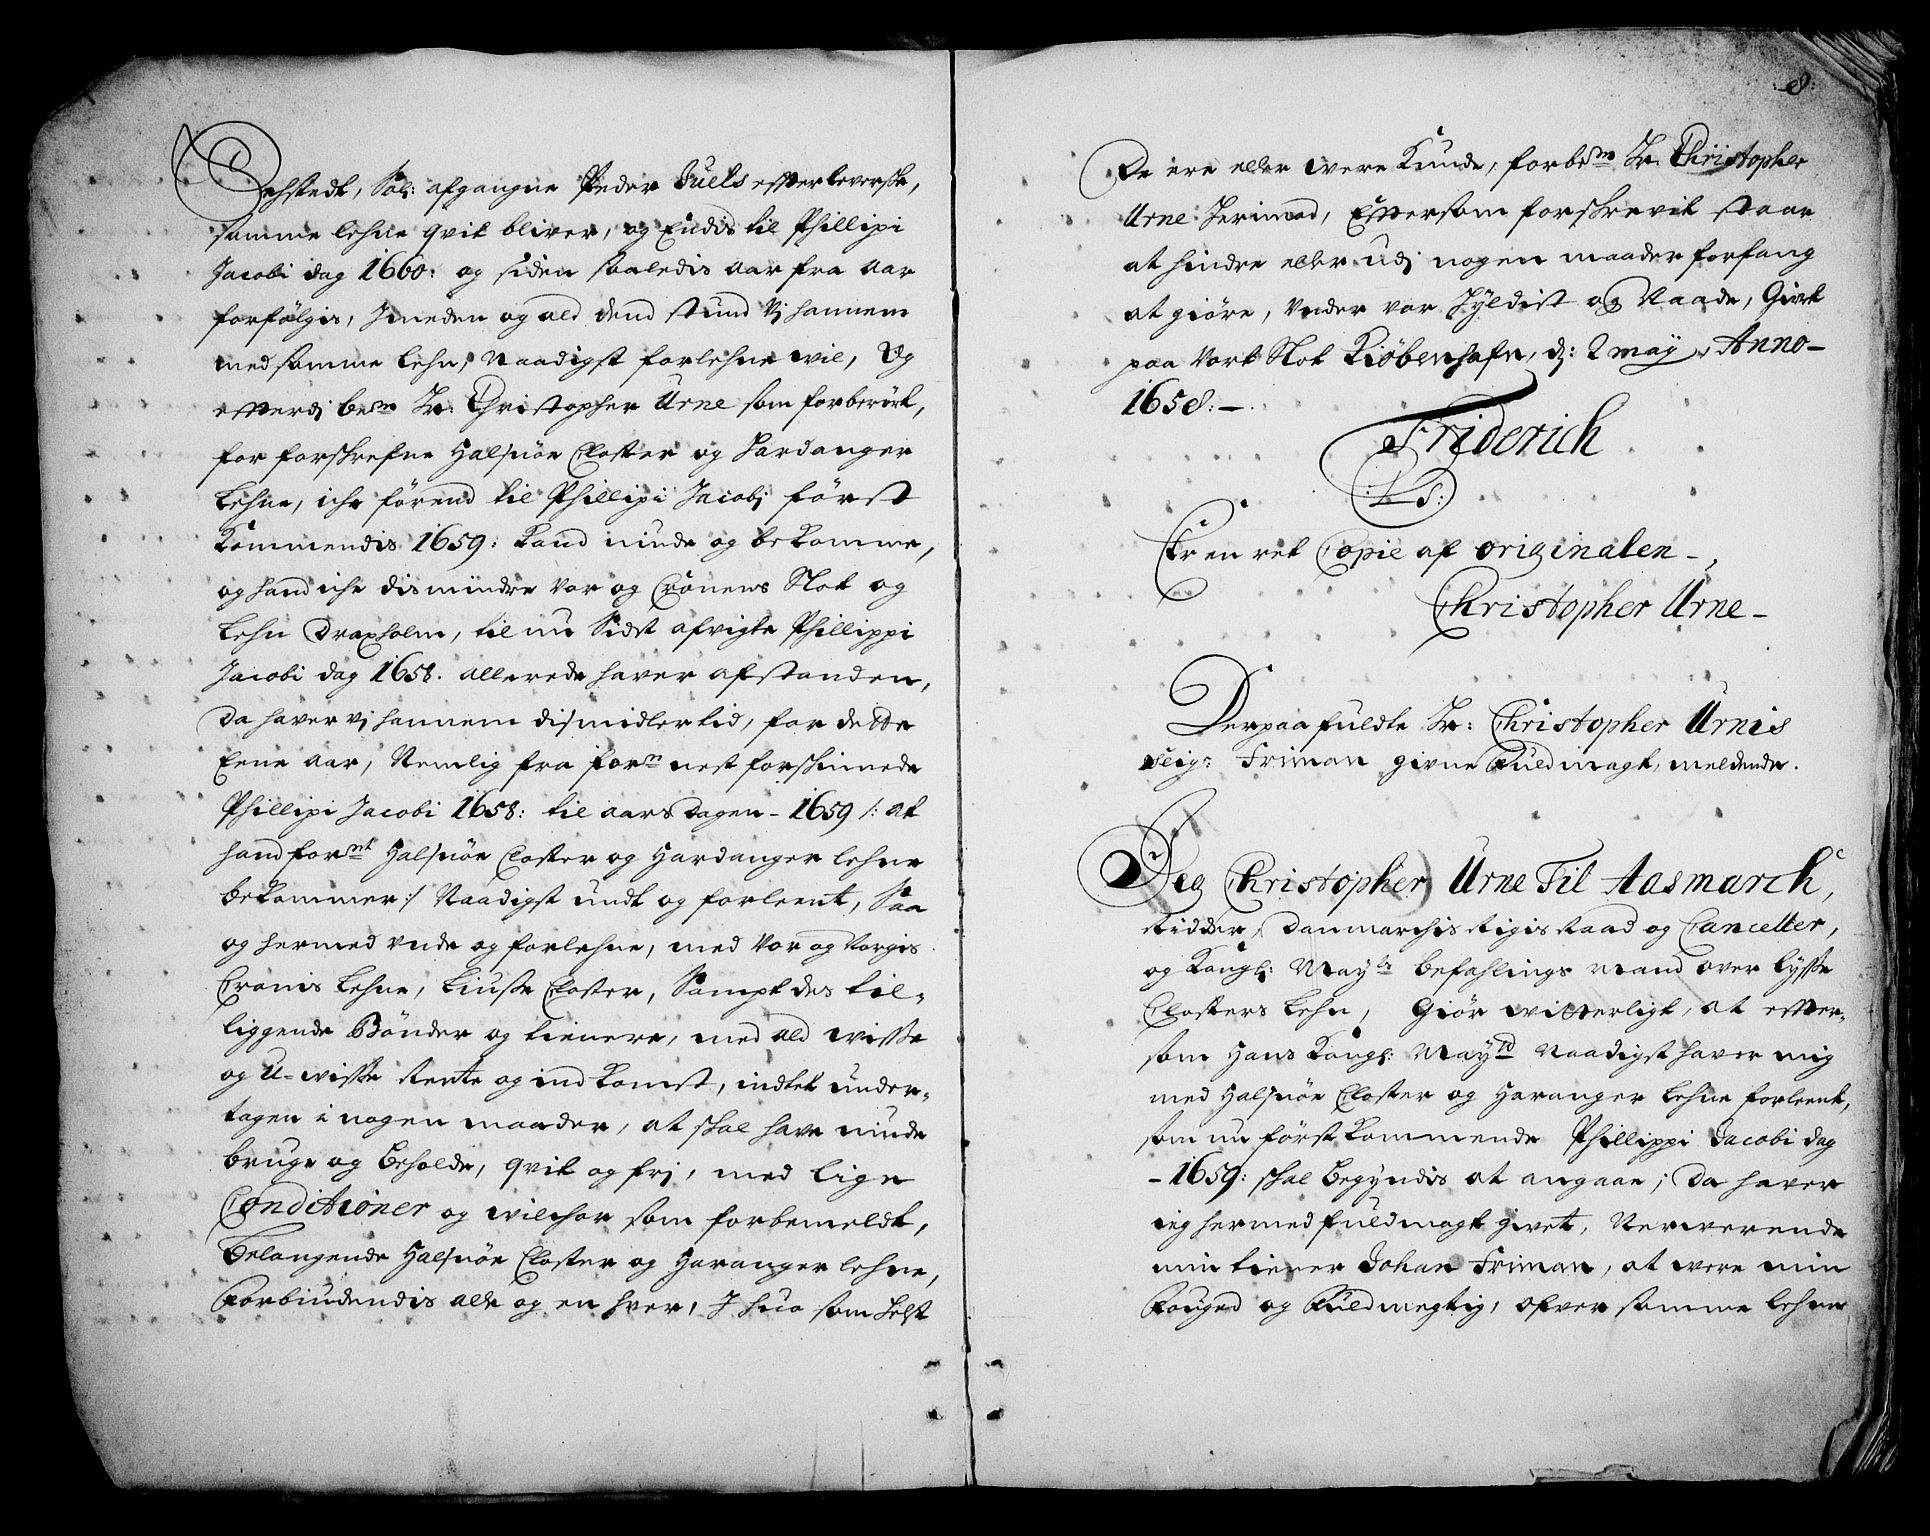 Sehstedt, Sal: afgangne Peder Juels effterleverske,
samme lehne qvit bliver, og Endis til Phillipi
Jacobi dag 1660: og siden saaledis Aar fra Aar
forfølgis, Imeden og ald dend stund Vj hannem
med samme lehn, Naadigst forlehne wil, Og
efterdj bem.te Hr: Christopher Urne som forberört,
for forskrefne Halsnöe Closter og Hardanger
Lehne, iche förend til Phillipi Jacobj först
Kommendis 1659: Kand niude og bekomme,
og hand iche dis mindre Vor og Cronens Slot og
Lehn Draxholm, til nu Sidst afvigte Phillippi
Jacobi dag 1658. allerede haver afstanden,
Da haver vj hannem dismidlertid, for dette
Eene Aar, Nemlig fra forn nest forskinnede
Phillipi Jacobi 1658: til aars dagen - 1659 /: at
hand formt Halsnöe Closter og Hardanger lehne
bekommer :/ Naadigst undt og forleent, Saa
og hermed vnde og forlehne, med Vor og Norgis
Cronis Lehne, Liusse Closter, Sampt des til-
liggende Bönder og tienere, med ald wisse
og U-wisse Rente og ind Komst, indtet under-
tagen i nogen maader, at skal have niude
bruge og beholde, qvit og frj, med lige
Conditioner og wilchor som forbemeldt,
Belangende Halsnöe Closter og Haranger lehne,
Forbiudendis alle og en hver, I hvo som helst
8:
De ere eller were Kunde, forbem Hr. Christopher
Urne herimod, Efftersom forskrevit staar
at hindre eller udj nogen maader forfang
at giöre, Vnder vor Hyldist og Naade, Givet
paa Vort Slot Kiöbenhafn, d: 2 maÿ, Anno-
1658:-
Friderich
:LS:
Er en ret Copie af originalen -,
Christopher Urne-
Derpaa fuldte Hr: Christopher Urnis
Friman givne Fuldmagt, meldende.
Jeg Christopher Urne Til Aasmarch,
Ridder, Danmarchis Rigis Raad og Cancelter,
og Kongl: Mayts befahlings mand over Lysse
Closters Lehn, Giör witterligt, at effter-
som Hans Kongl: Mayts Naadigst haver mig
med Halsnöe Closter og Haranger Lehne forleent,
som nu först Kommende Phillippi Jacobi dag
- 1659: skal begyndis at angaae; Da haver
ieg hermed fuldmagt givet, Nerwerende
min tiener Johan Friman, at were min
Fouged og Fuldmegtig, ofver samme lehne